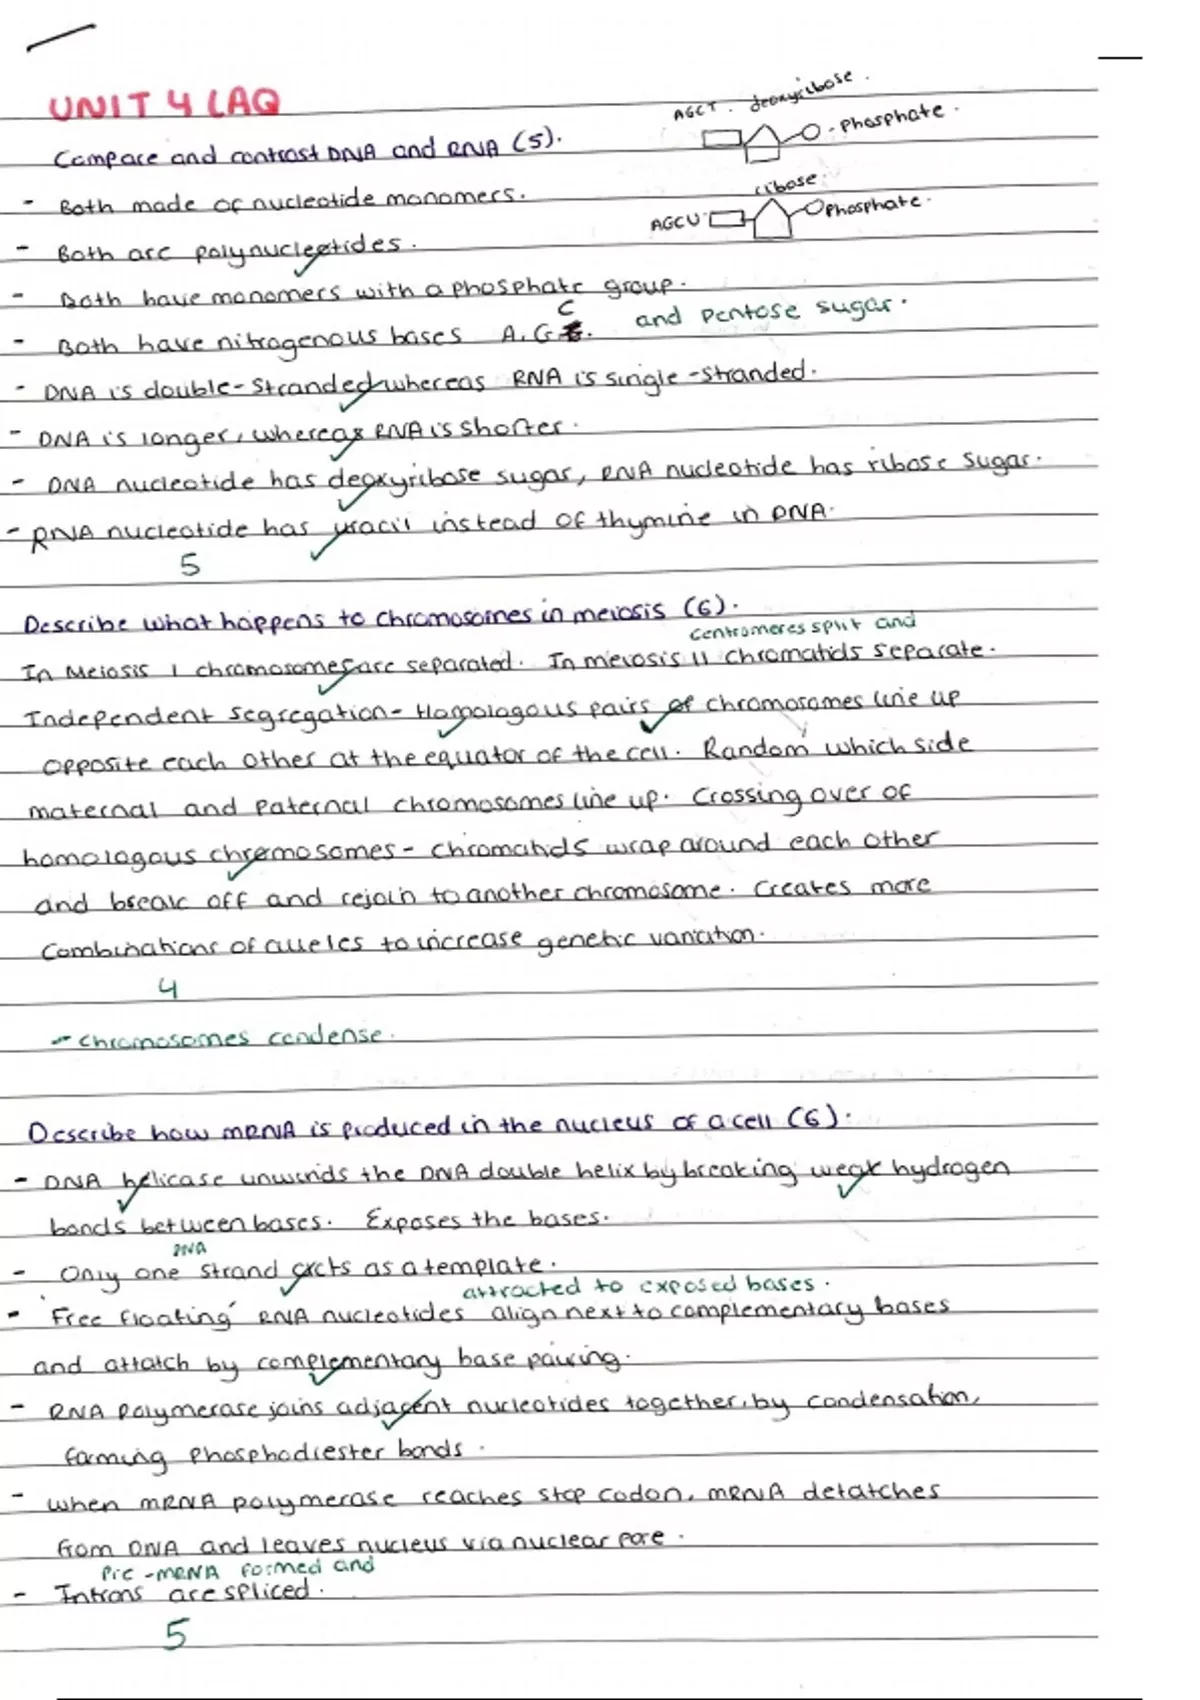 UNIT 4 LAQ
AGCT. deoxyribose.
- Phosphate.
Compare and contrast DNA and RNA (5).
ribose.
- Both made of nucleotide monomers.
AGCU Phosphate.
- Both are polynucleotides.
- Both have monomers with a phosphate group.
C and pentose sugar.
- Both have nitrogenous bases A, G
- DNA is double-stranded whereas RNA is single-stranded.
- DNA is longer, whereas RNA is shorter.
- DNA nucleotide has deoxyribose sugar, RNA nucleotide has ribose sugar.
- RNA nucleotide has uracil instead of thymine in DNA.
5
Describe what happens to chromosomes in meiosis (6).
centromeres split and
In Meiosis 1 chromosomes are separated. In meiosis 11 chromatids separate.
Independent segregation - Homologous pairs of chromosomes line up
opposite each other at the equator of the cell. Random which side
maternal and paternal chromosomes line up. Crossing over of
homologous chromosomes - chromatids wrap around each other
and break off and rejoin to another chromosome. Creates more
combinations of alleles to increase genetic variation.
4
- chromosomes condense.
Describe how mRNA is produced in the nucleus of a cell (6).
- DNA helicase unwinds the DNA double helix by breaking weak hydrogen
bonds between bases. Exposes the bases.
DNA
- Only one strand acts as a template.
attracted to exposed bases.
- 'Free floating' RNA nucleotides align next to complementary bases
and attatch by complementary base pairing.
- RNA polymerase joins adjacent nucleotides together, by condensation,
forming phosphodiester bonds.
- when mRNA polymerase reaches stop codon, mRNA detatches
from DNA and leaves nucleus via nuclear pore.
Pre-mRNA formed and
- Introns are spliced.
5